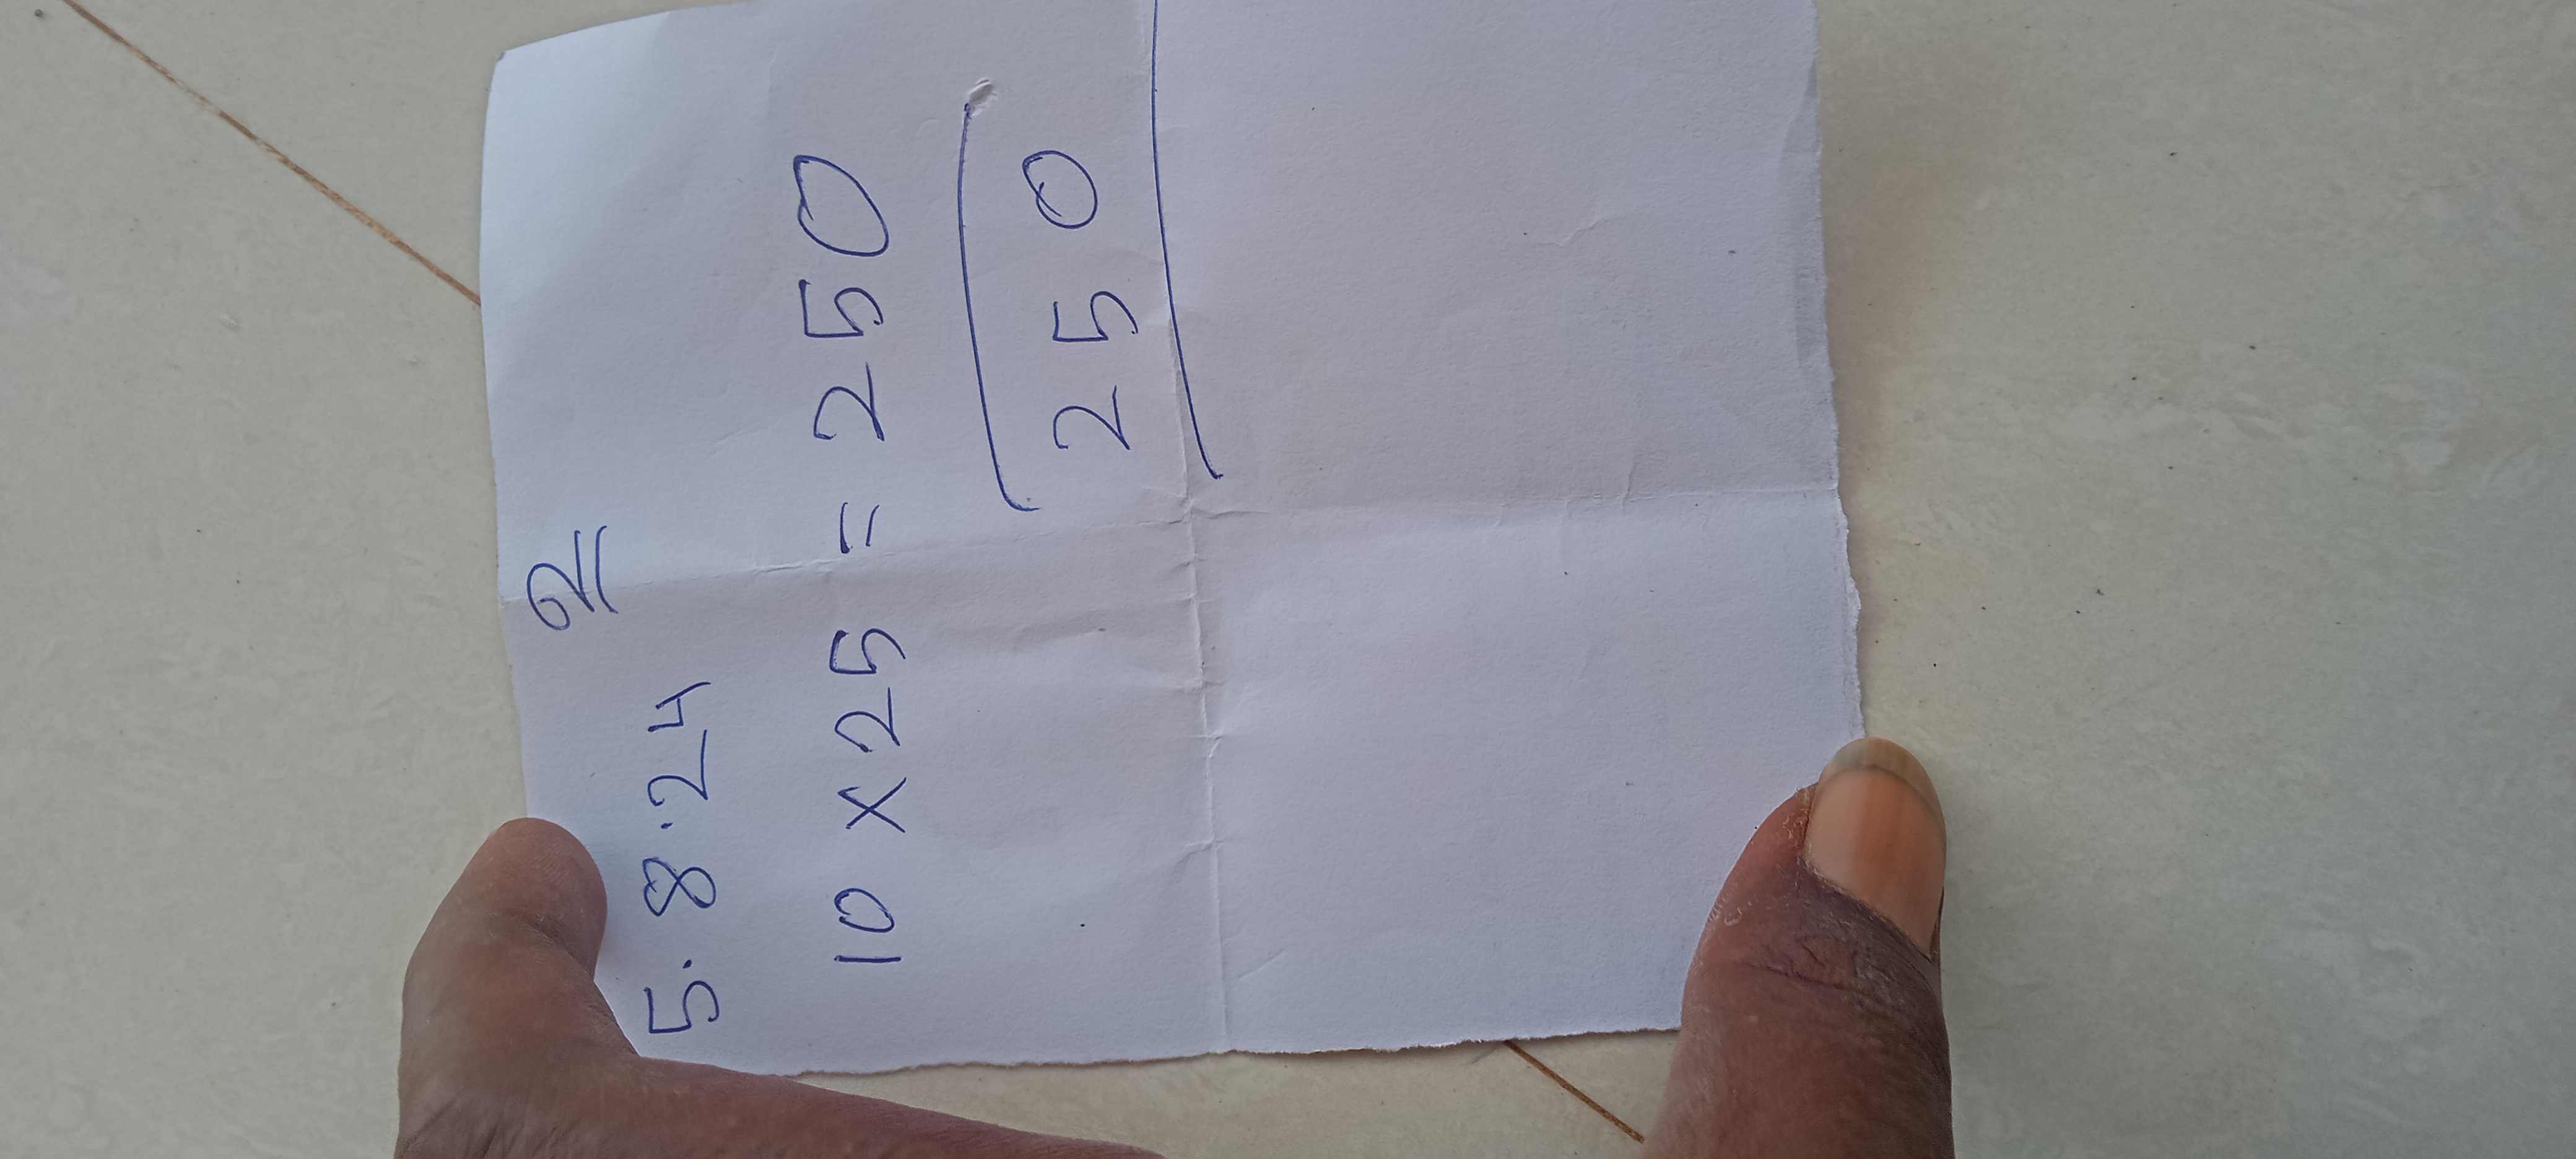 2
5.8.24
10 x 25 = 250
250